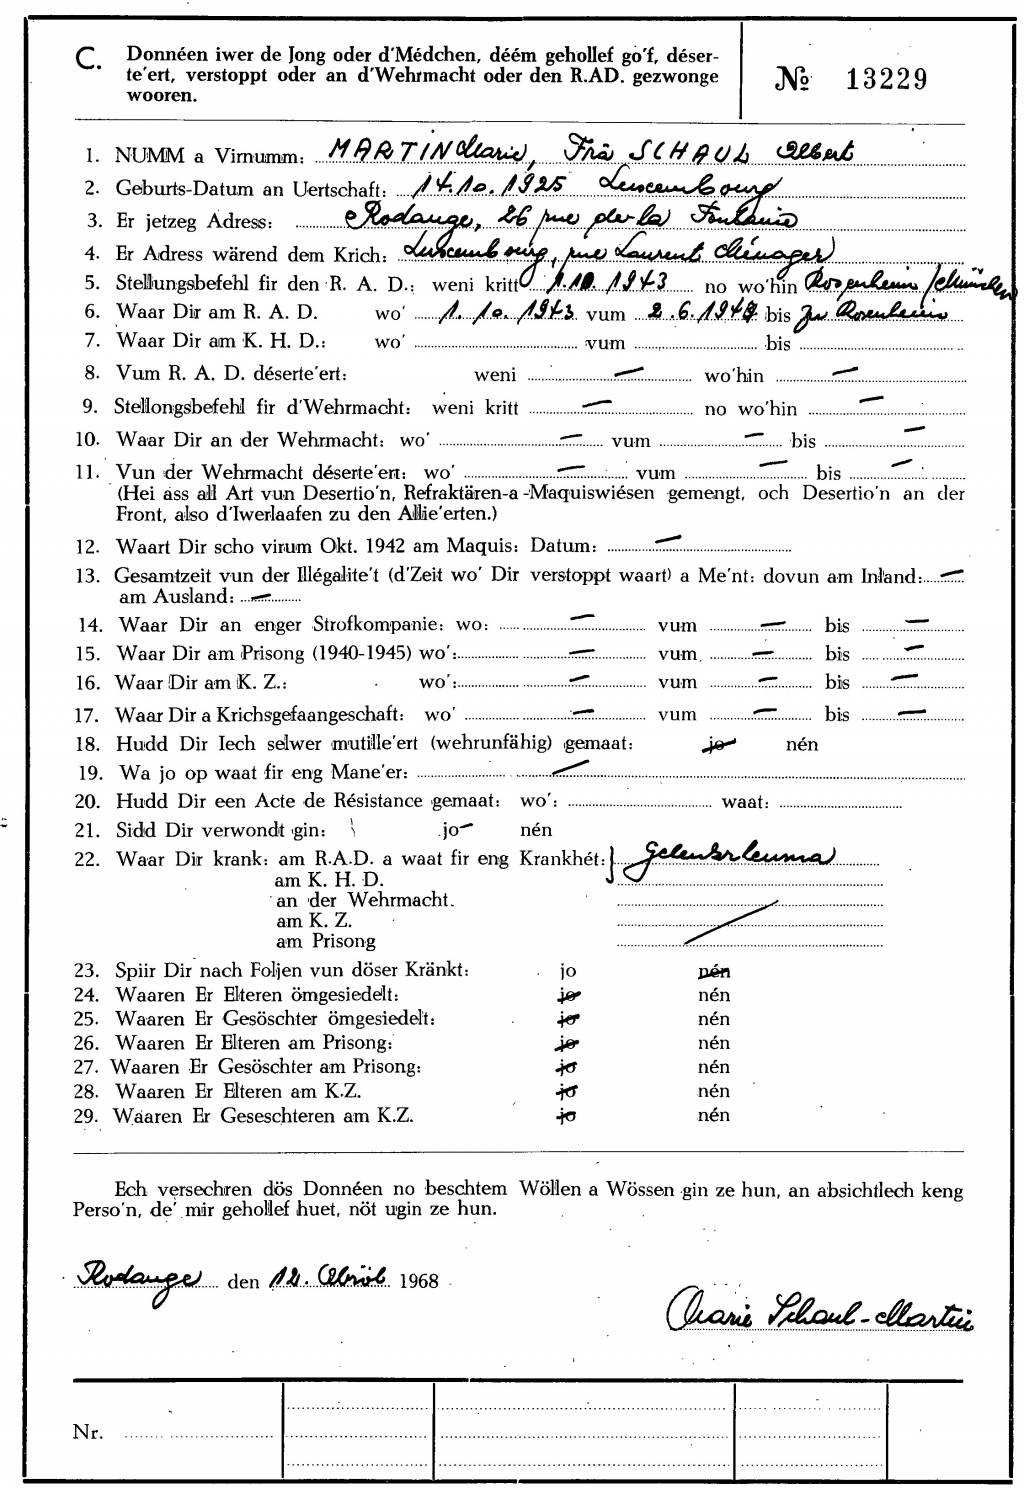 C. Donnéen iwer de Jong oder d'Médchen, déém gehollef go'f, déser-
te'ert, verstoppt oder an d'Wehrmacht oder den R.AD. gezwonge
wooren.
№ 13229
1. NUMM a Virnumm: MARTIN Marie, Frä SCHAUL Albert
2. Geburts-Datum an Uertschaft: 14.10.1925 Luxembourg
3. Er jetzeg Adress: Rodange, 26 rue de la Fontaine
4. Er Adress wärend dem Krich: Luxembourg, rue Laurent Ménager
5. Stellungsbefehl fir den R. A. D.: weni kritt 1.10.1943 no wo'hin Rosenheim/München
6. Waar Dir am R. A. D. wo' 1.10.1943 vum 2.6.1944 bis zu Rosenheim
7. Waar Dir am K. H. D.: wo' vum bis
8. Vum R. A. D. déserte'ert: weni — wo'hin —
9. Stellongsbefehl fir d'Wehrmacht: weni kritt — no wo'hin —
10. Waar Dir an der Wehrmacht: wo' — vum — bis —
11. Vun der Wehrmacht déserte'ert: wo' — vum — bis —
(Hei ass all Art vun Desertio'n, Refraktären-a-Maquiswiésen gemengt, och Desertio'n an der
Front, also d'Iwerlaafen zu den Allie'erten.)
12. Waart Dir scho virum Okt. 1942 am Maquis: Datum: —
13. Gesamtzeit vun der Illégalite't (d'Zeit wo' Dir verstoppt waart) a Me'nt: dovun am Inland: —
am Ausland: —
14. Waar Dir an enger Strofkompanie: wo: — vum — bis —
15. Waar Dir am Prisong (1940-1945) wo': — vum — bis —
16. Waar Dir am K. Z.: wo': — vum — bis —
17. Waar Dir a Krichsgefaangeschaft: wo' — vum — bis —
18. Hudd Dir Iech selwer mutille'ert (wehrunfähig) gemaat: jo nén
19. Wa jo op waat fir eng Mane'er: —
20. Hudd Dir een Acte de Résistance gemaat: wo': waat:
21. Sidd Dir verwondt gin: jo nén
22. Waar Dir krank: am R.A.D. a waat fir eng Krankhét: Gelenkrheuma
am K. H. D.
an der Wehrmacht.
am K. Z.
am Prisong
23. Spiir Dir nach Foljen vun döser Kränkt: jo nén
24. Waaren Er Elteren ömgesiedelt: jo nén
25. Waaren Er Gesöschter ömgesiedelt: jo nén
26. Waaren Er Elteren am Prisong: jo nén
27. Waaren Er Gesöschter am Prisong: jo nén
28. Waaren Er Elteren am K.Z. jo nén
29. Waaren Er Geseschteren am K.Z. jo nén
Ech versechren dös Donnéen no beschtem Wöllen a Wössen gin ze hun, an absichtlech keng
Perso'n, de' mir gehollef huet, nöt ugin ze hun.
Rodange den 12. Abröl 1968
Marie Schaul-Martin
Nr.